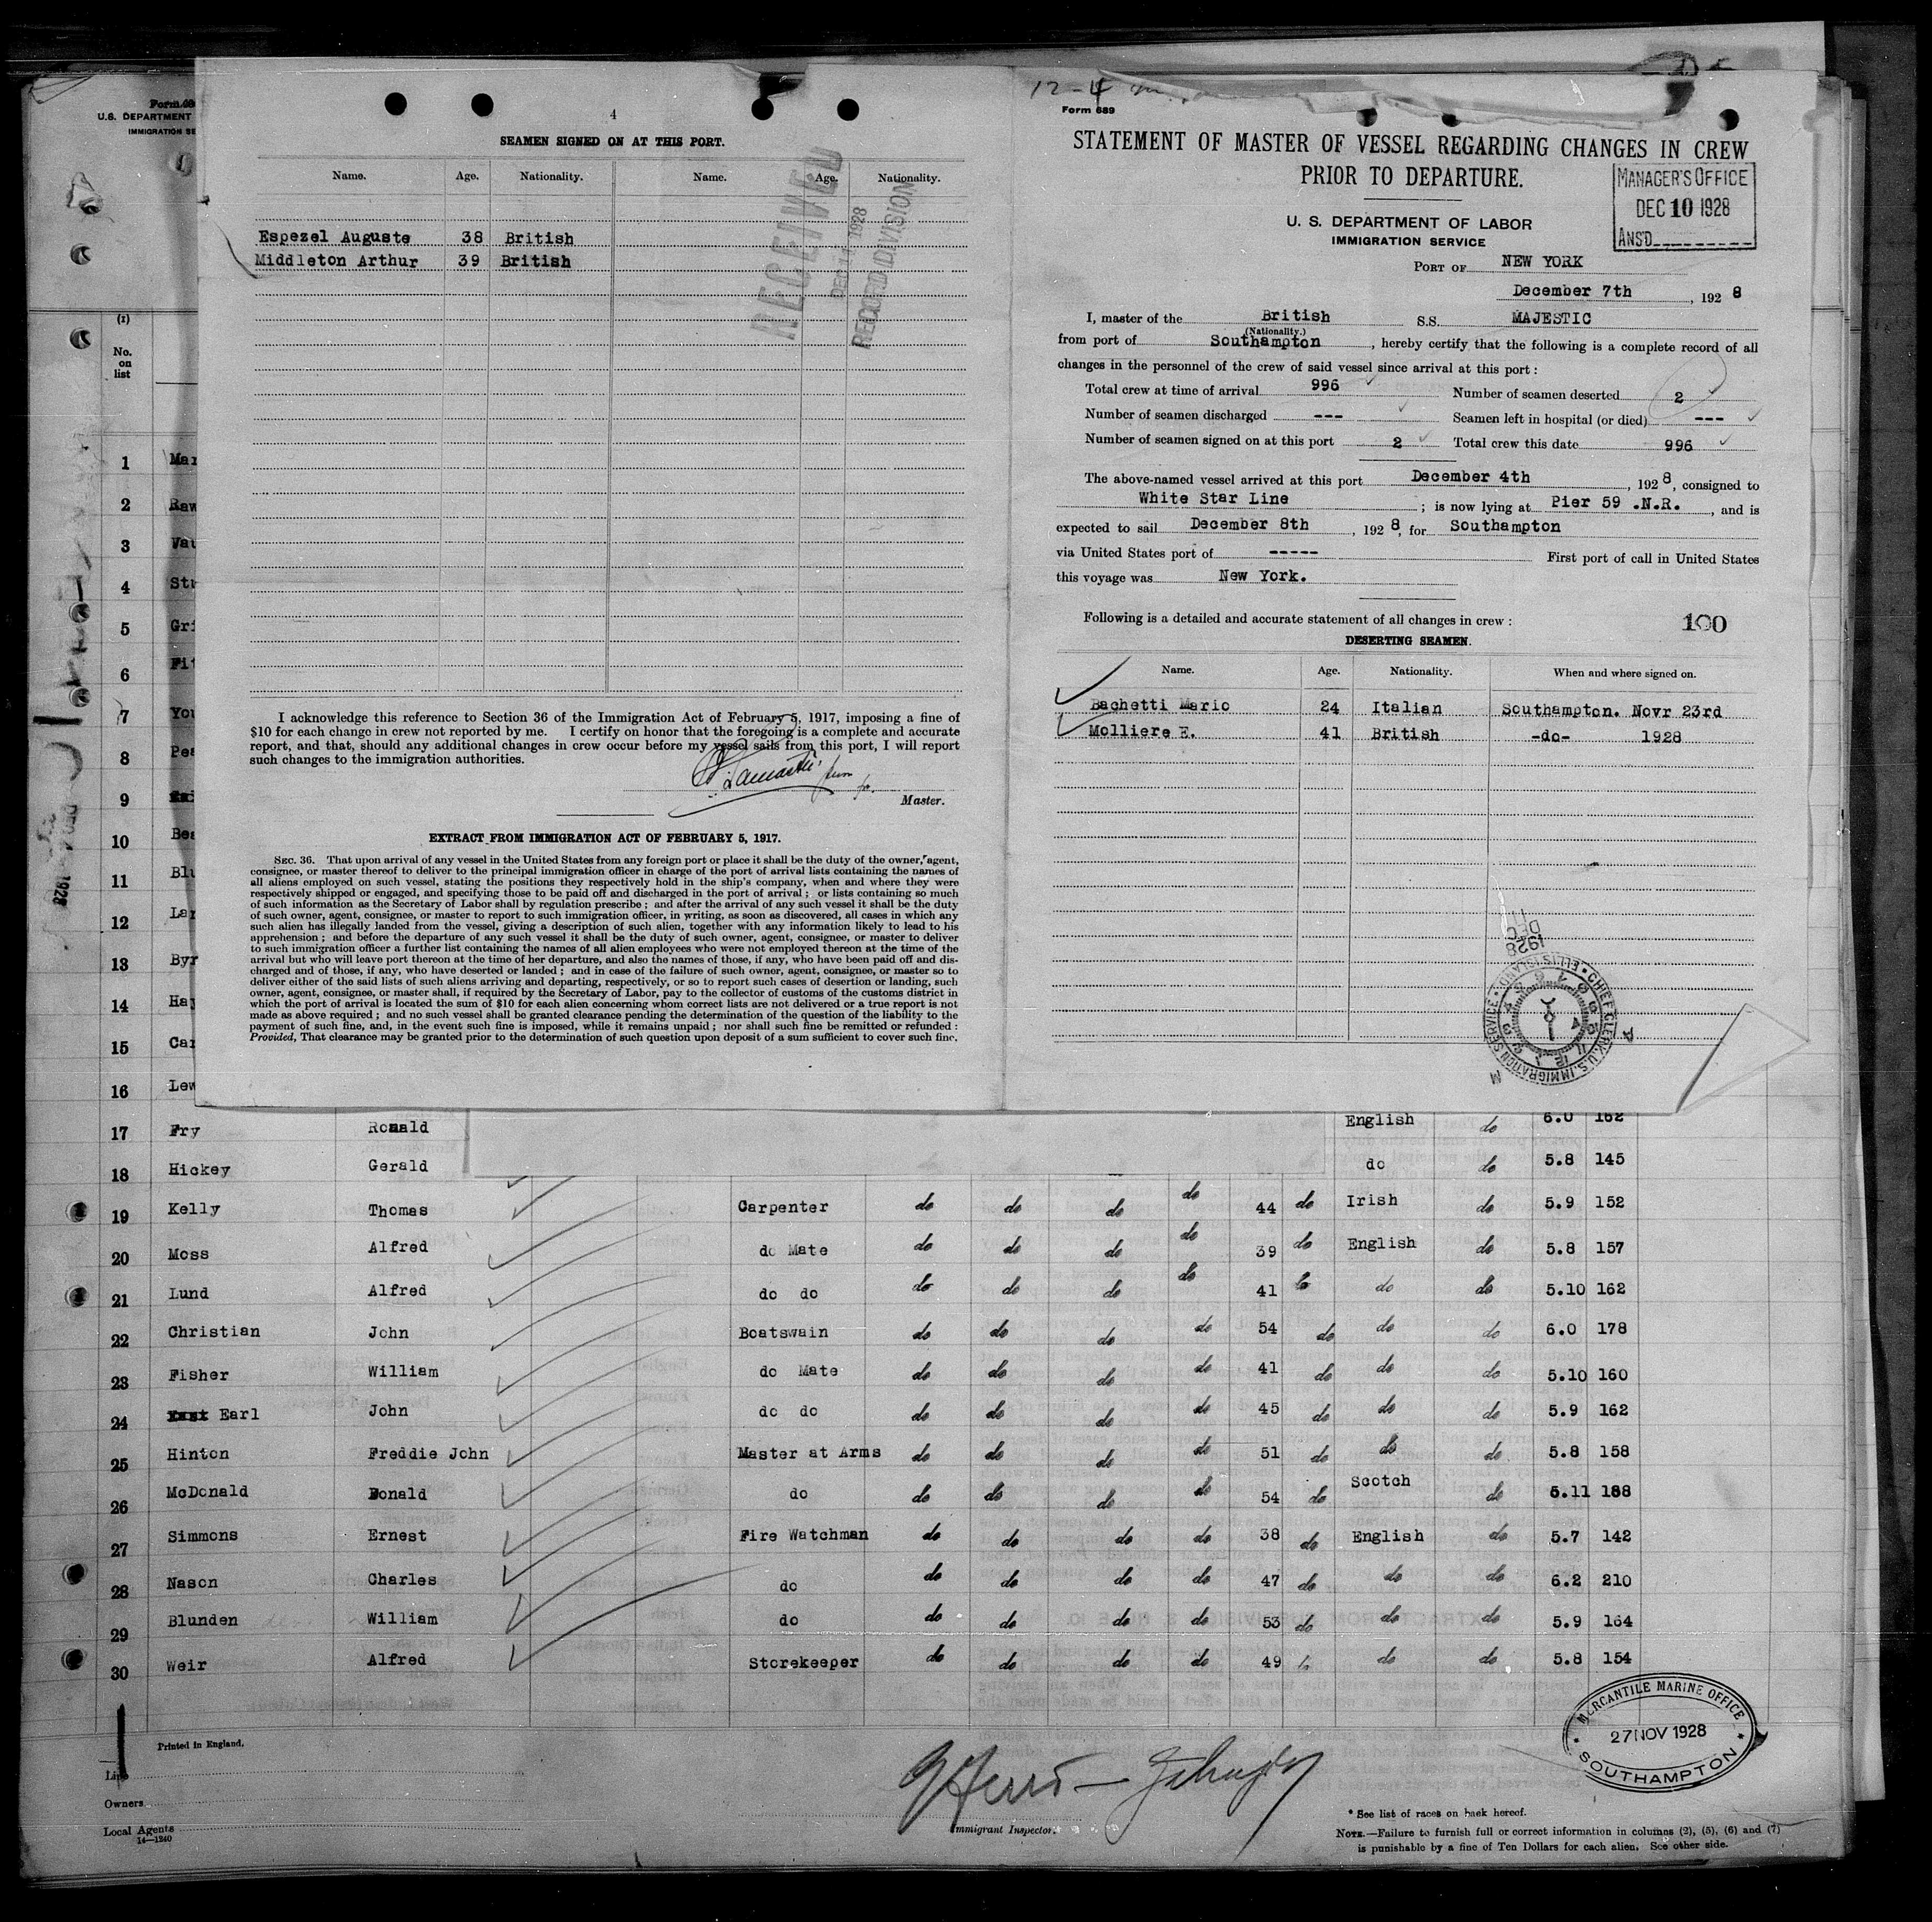 4
SEAMEN SIGNED ON AT THIS PORT.
Name. Age. Nationality. Name. Age. Nationality.
Espezel Auguste 38 British
Middleton Arthur 39 British
RECEIVED
DEC 11 1928
RECORD DIVISION
I acknowledge this reference to Section 36 of the Immigration Act of February 5, 1917, imposing a fine of
$10 for each change in crew not reported by me. I certify on honor that the foregoing is a complete and accurate
report, and that, should any additional changes in crew occur before my vessel sails from this port, I will report
such changes to the immigration authorities.
Master.
EXTRACT FROM IMMIGRATION ACT OF FEBRUARY 5, 1917.
SEC. 36. That upon arrival of any vessel in the United States from any foreign port or place it shall be the duty of the owner, agent,
consignee, or master thereof to deliver to the principal immigration officer in charge of the port of arrival lists containing the names of
all aliens employed on such vessel, stating the positions they respectively hold in the ship's company, when and where they were
respectively shipped or engaged, and specifying those to be paid off and discharged in the port of arrival; or lists containing so much
of such information as the Secretary of Labor shall by regulation prescribe; and after the arrival of any such vessel it shall be the duty
of such owner, agent, consignee, or master to report to such immigration officer, in writing, as soon as discovered, all cases in which any
such alien has illegally landed from the vessel, giving a description of such alien, together with any information likely to lead to his
apprehension; and before the departure of any such vessel it shall be the duty of such owner, agent, consignee, or master to deliver
to such immigration officer a further list containing the names of all alien employees who were not employed thereon at the time of the
arrival but who will leave port thereon at the time of her departure, and also the names of those, if any, who have been paid off and dis-
charged and of those, if any, who have deserted or landed; and in case of the failure of such owner, agent, consignee, or master so to
deliver either of the said lists of such aliens arriving and departing, respectively, or so to report such cases of desertion or landing, such
owner, agent, consignee, or master shall, if required by the Secretary of Labor, pay to the collector of customs of the customs district in
which the port of arrival is located the sum of $10 for each alien concerning whom correct lists are not delivered or a true report is not
made as above required; and no such vessel shall be granted clearance pending the determination of the question of the liability to the
payment of such fine, and, in the event such fine is imposed, while it remains unpaid; nor shall such fine be remitted or refunded:
Provided, That clearance may be granted prior to the determination of such question upon deposit of a sum sufficient to cover such fine.
12-4
Form 689
STATEMENT OF MASTER OF VESSEL REGARDING CHANGES IN CREW
PRIOR TO DEPARTURE.
MANAGER'S OFFICE
DEC 10 1928
ANS'D
U. S. DEPARTMENT OF LABOR
IMMIGRATION SERVICE
PORT OF NEW YORK
December 7th, 1928
I, master of the British S.S. MAJESTIC
(Nationality.)
from port of Southampton, hereby certify that the following is a complete record of all
changes in the personnel of the crew of said vessel since arrival at this port:
Total crew at time of arrival 996 Number of seamen deserted 2
Number of seamen discharged --- Seamen left in hospital (or died) ---
Number of seamen signed on at this port 2 Total crew this date 996
The above-named vessel arrived at this port December 4th, 1928, consigned to
White Star Line; is now lying at Pier 59 .N.R., and is
expected to sail December 8th, 1928, for Southampton
via United States port of ----- First port of call in United States
this voyage was New York.
Following is a detailed and accurate statement of all changes in crew: 100
DESERTING SEAMEN.
Name. Age. Nationality. When and where signed on.
Bachetti Mario 24 Italian Southampton. Novr 23rd
Molliere E. 41 British -do- 1928
DEC 11 1928
CHIEF CLERK, U.S. IMMIGRATION SERVICE • ELLIS ISLAND
U.S. DEPARTMENT
(1)
No. on list
1 Mar
2 Raw
3 Vau
4 Stu
5 Gri
6 Fit
7 You
8 Pea
9
10 Bea
11 Blu
12 Lar
13 Byr
14 Hay
15 Car
16 Lew
17 Fry Ronald English do 6.0 162
18 Hickey Gerald do do 5.8 145
19 Kelly Thomas Carpenter do do do do 44 do Irish do 5.9 152
20 Moss Alfred do Mate do do do do 39 do English do 5.8 157
21 Lund Alfred do do do do do do 41 do do do 5.10 162
22 Christian John Boatswain do do do do 54 do do do 6.0 178
23 Fisher William do Mate do do do do 41 do do do 5.10 160
24 Earl John do do do do do do 45 do do do 5.9 162
25 Hinton Freddie John Master at Arms do do do do 51 do do do 5.8 158
26 McDonald Donald do do do do do 54 do Scotch do 5.11 188
27 Simmons Ernest Fire Watchman do do do do 38 do English do 5.7 142
28 Nason Charles do do do do do 47 do do do 6.2 210
29 Blunden William do do do do do 53 do do do 5.9 164
30 Weir Alfred Storekeeper do do do do 49 do do do 5.8 154
MERCANTILE MARINE OFFICE
27 NOV 1928
SOUTHAMPTON
Printed in England.
Line
Owners
Local Agents
14—1240
Immigrant Inspector.
* See list of races on back hereof.
NOTE.—Failure to furnish full or correct information in columns (2), (5), (6) and (7)
is punishable by a fine of Ten Dollars for each alien. See other side.